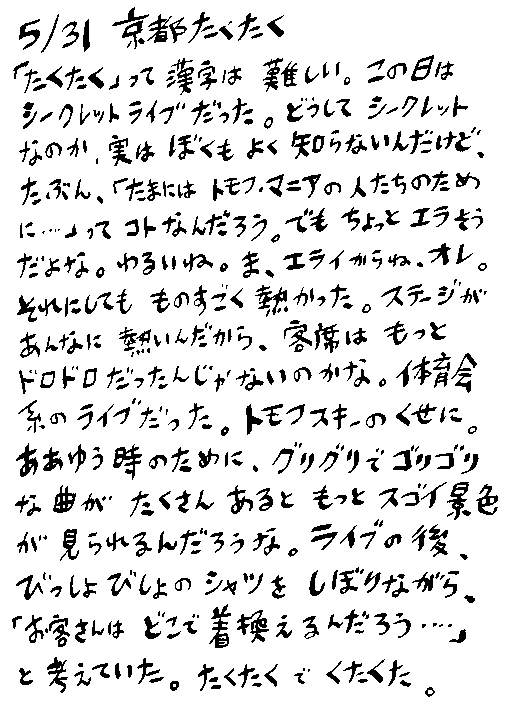 5/31 京都たくたく
「たくたく」って漢字は 難しい。この日は
シークレットライブだった。どうしてシークレット
なのか、実は ぼくも よく知らないんだけど、
たぶん、「たまには トモフ・マニアの人たちのため
に…」って コトなんだろう。でも ちょっと エラそう
だよな。わるいね。ま、エライからね、オレ。
それにしても ものすごく 熱かった。ステージが
あんなに 熱いんだから、客席は もっと
ドロドロだったんじゃないのかな。体育会
系のライブだった。トモフスキーのくせに。
ああゆう時のために、グリグリで ゴリゴリ
な曲が たくさん あると もっと スゴイ景色
が 見られるんだろうな。ライブの後、
びっしょびしょの シャツを しぼりながら、
「お客さんは どこで 着換えるんだろう‥‥」
と 考えていた。たくたくで くたくた。